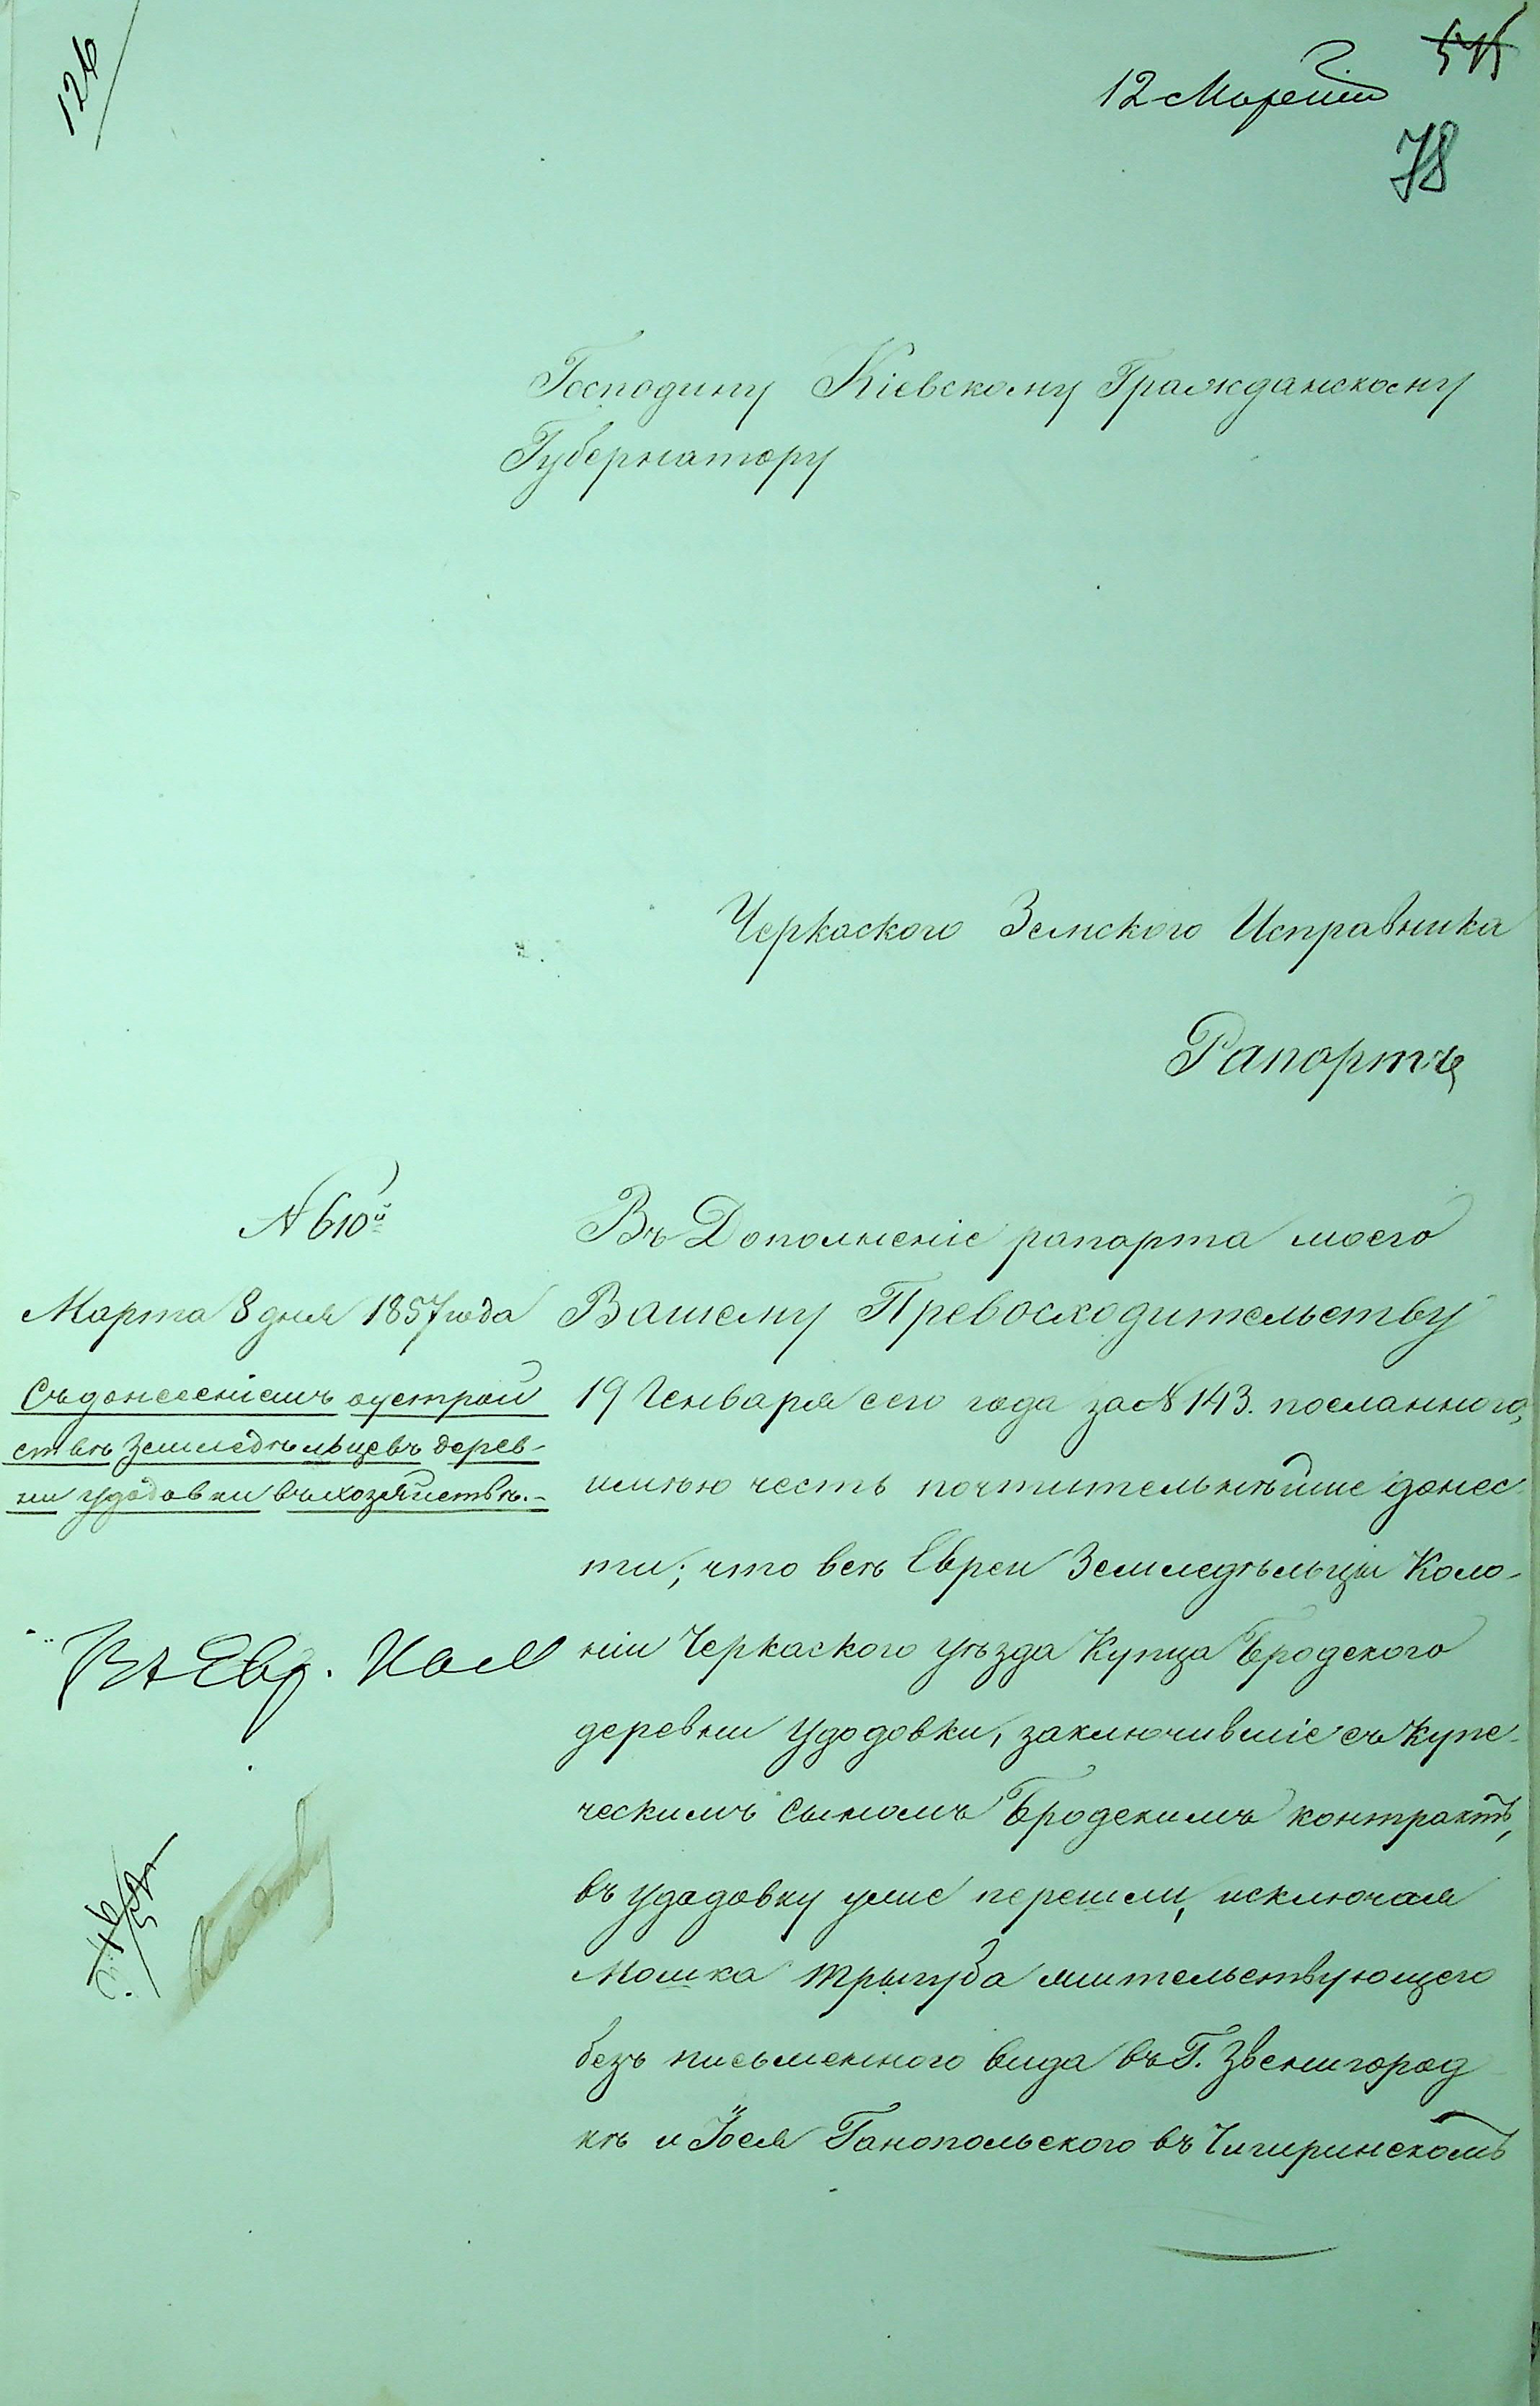 126
515
12 Марта
78
Господину Кіевскому Гражданскому
Губернатору
Черкаского Земского Исправника
Рапортъ
№ 610й
Марта 8 дня 1857 года
Съ донесеніемъ о устрой
ствѣ земледѣльцевъ дерев-
ни Удодовки въ хозяйствѣ.-
Въ Дополненіе рапорта моего
Вашему Превосходительству
19 Генваря сего года за № 143. посланного,
имѣю честь почтительнѣйше донес-
ти; что всѣ Евреи Земледѣльцы Коло-
ніи Черкаского уѣзда Купца Бродского
деревни Удодовки, заключившіе съ Купе-
ческимъ Сыномъ Бродскимъ контрактъ,
въ Удодовку уже перешли, исключая
Мошка Трыгуба жительствующего
безъ письменного вида въ Г. Звенигород
кѣ и Йося Ганопольского въ Чигиринскомъ